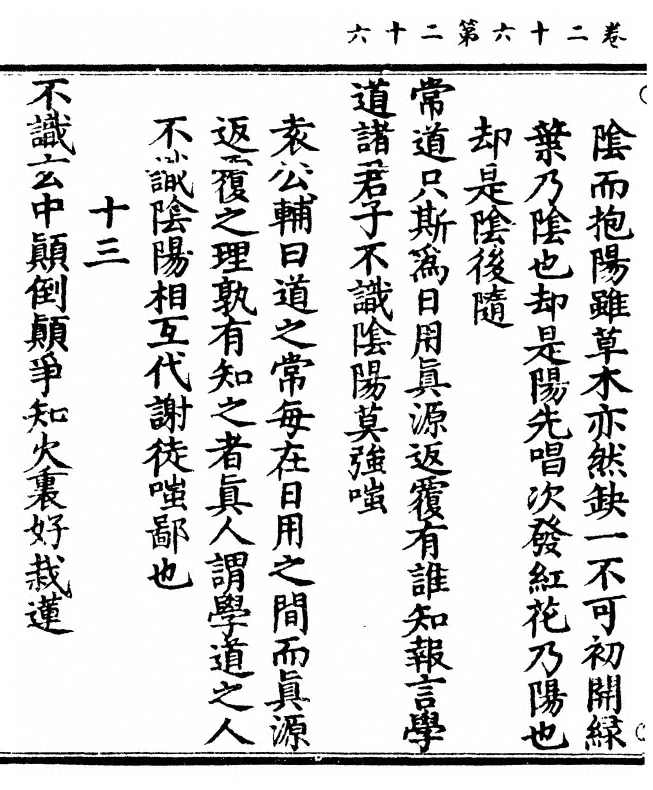 卷二十六第二十六
陰而抱陽雖草木亦然缺一不可初開緑
葉乃陰也却是陽先唱次發紅花乃陽也
却是陰後隨
常道只斯為日用眞源返覆有誰知報言學
道諸君子不識陰陽莫強嗤
袁公輔曰道之常每在日用之間而眞源
返覆之理孰有知之者眞人謂學道之人
不識陰陽相互代謝徒嗤鄙也
十三
不識玄中顛倒顛爭知火裏好栽蓮